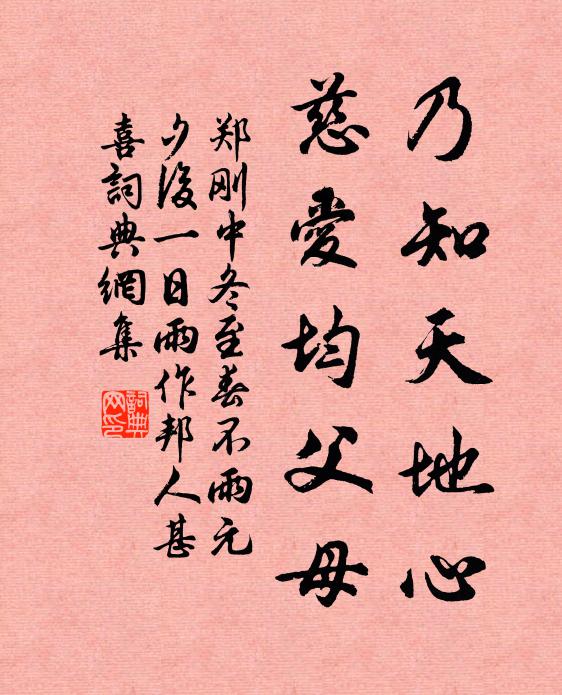 乃知天地心
慈愛均父母
郑刚中冬至春不雨元
夕後一日雨作邦人甚
喜詞典網集
詞典
网印